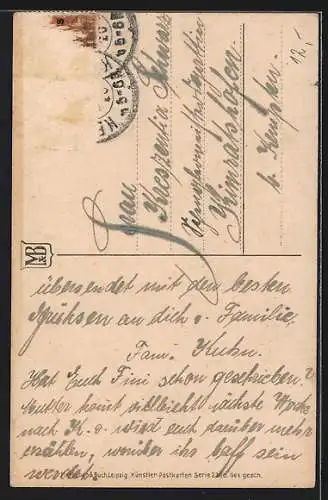 12,-
Frau
Kreszentia Schwarz
Kimratshofen
b. Kempten.
übersendet mit den besten
Grüssen an dich u. Familie
Fam. Kuhn.
Hat Euch Fini schon geschrieben?
Mutter komt vielleicht nächste Woche
nach K. u. wird euch darüber mehr
erzählen, worüber ihr baff sein
werdet.
Leipzig. Künstler-Postkarten Serie Ges. gesch.